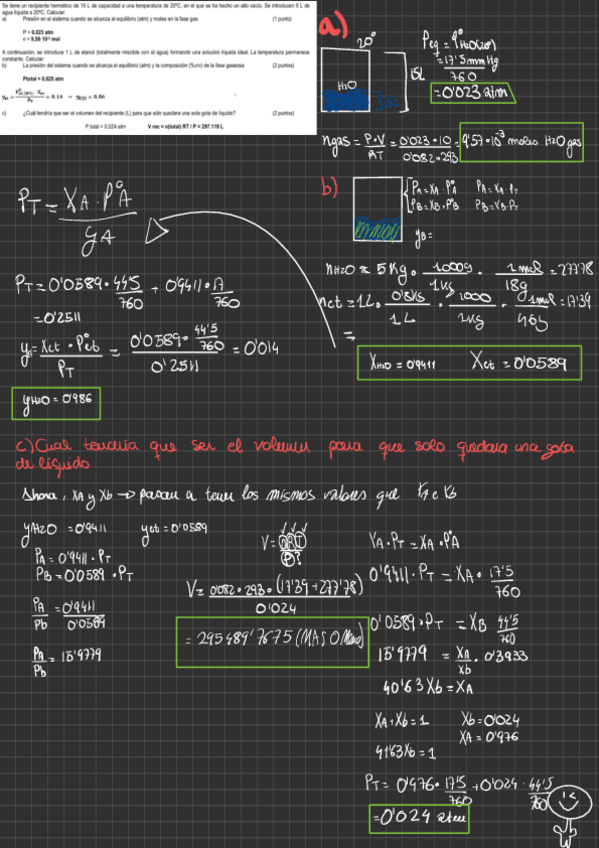 Se tiene un recipiente hermético de 15 L de capacidad a una temperatura de 20ºC, en el que se ha hecho un alto vacío. Se introducen 5 L de
agua líquida a 20ºC. Calcular:
a) Presión en el sistema cuando se alcanza el equilibrio (atm) y moles en la fase gas (1 punto)
P = 0,023 atm
n = 9,58·10⁻³ mol
A continuación, se introduce 1 L de etanol (totalmente miscible con el agua) formando una solución líquida ideal. La temperatura permanece
constante. Calcular:
b) La presión del sistema cuando se alcanza el equilibrio (atm) y la composición (%v/v) de la fase gaseosa (2 puntos)
Ptotal = 0,025 atm
= 0.14 → = 0.86
c) ¿Cuál tendría que ser el volumen del recipiente (L) para que sólo quedara una sola gota de líquido? (2 puntos)
P total = 0,024 atm V rec = n(total) RT / P = 297.119 L
a)
20º
H2O
15L
5L
Peq = PºH2O(20º)
= 17'5 mmHg
760
= 0'023 atm
ngas = P·V / RT = 0'023·10 / 0'082·293 = 9'57·10⁻³ moles H2O gas
b)
PA = XA·PºA PA = YA·PT
PB = XB·PºB PB = YB·PT
yB =
PT = XA·PºA / yA
nH2O = 5Kg · 1000g / 1Kg · 1mol / 18g = 277'78
net = 1L · 0'8Kg / 1L · 1000 / 1Kg · 1mol / 46g = 17'39
=
XH2O = 0'9411 Xet = 0'0589
PT = 0'0589 · 44'5 / 760 + 0'9411 · 17 / 760
= 0'2511
y = Xet · Pºet / PT = 0'0589 · 44'5 / 760 / 0'2511 = 0'014
yH2O = 0'986
c) Cual tendria que ser el volumen para que solo quedara una gota
de líquido
Ahora, XA y Xb → pasan a tener los mismos valores que YA e Yb
yH2O = 0'9411 yet = 0'0589
PA = 0'9411 · PT
PB = 0'0589 · PT
PA / Pb = 0'9411 / 0'0589
PA / Pb = 15'9779
V = nRT / P?
V = 0'082 · 293 · (17'39 + 277'78) / 0'024
= 295489'7675 (MAS O Menos)
YA · PT = XA · PºA
0'9411 · PT = XA · 17'5 / 760
0'0589 · PT = XB 44'5 / 760
15'9779 = XA / Xb · 0'3933
40'63 Xb = XA
XA + Xb = 1 Xb = 0'024
41'63 Xb = 1 XA = 0'976
PT = 0'976 · 17'5 / 760 + 0'024 · 44'5 / 760
= 0'024 atm